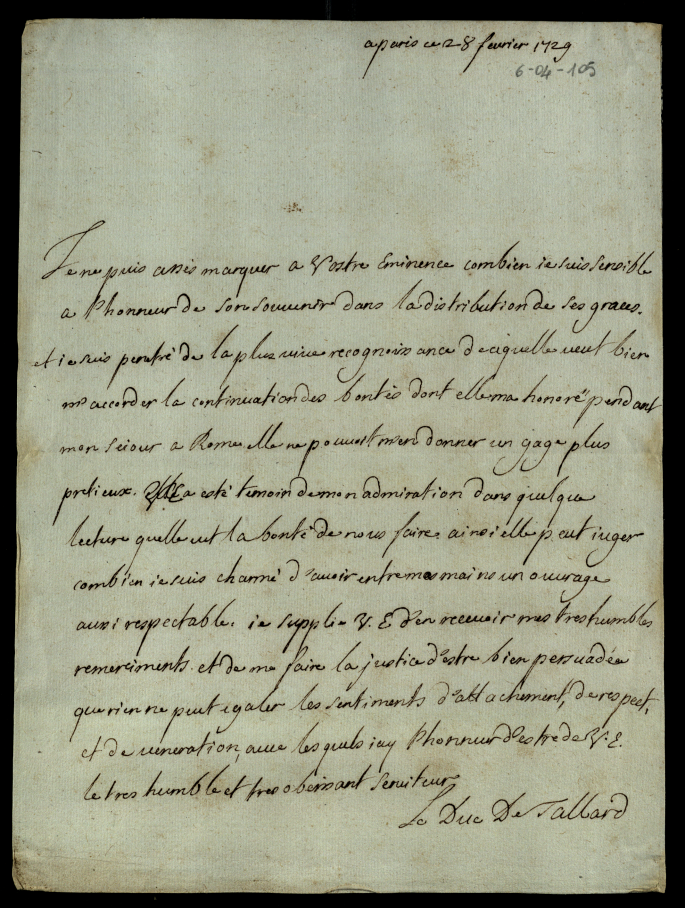 a paris ce 28 fevrier 1729
6-04-105
Je ne puis assés marquer a Vostre Eminence combien ie suis sensible
a l'honneur de son souuenir dans la distribution de ses graces.
et ie suis penetré de la plus viue recognoissance de ce quelle veut bien
m'accorder la continuation des bontés dont elle ma honoré pendant
mon seiour a Rome elle ne pouuoit m'en donner un gage plus
pretieux. Elle a esté temoin de mon admiration dans quelque
lecture quelle eut la bonté de nous faire. ainsi elle peut iuger
combien ie suis charmé d'auoir entre mes mains un ouurage
aussi respectable. ie supplie V. E d'en receuoir mes tres humbles
remerciments. et de me faire la justice d'estre bien persuadée
que rien ne peut egaler les sentiments d'attachement, de respect,
et de veneration, auec les quels i'ay l'honneur d'estre de V. E.
le tres humble et tres obeissant seruiteur
Le Duc De Tallard